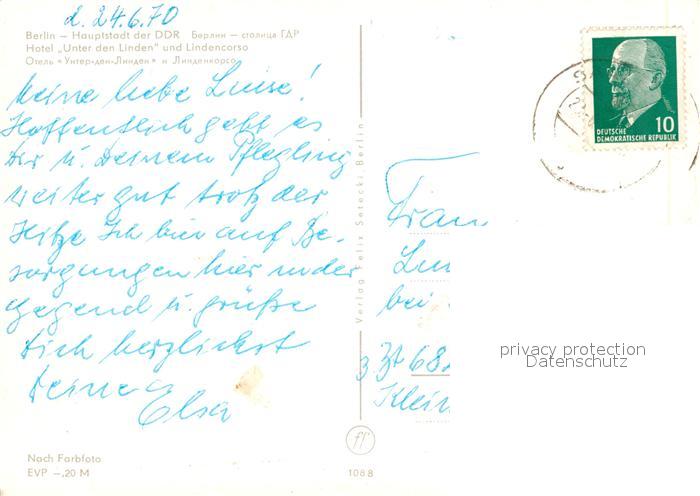 d. 24.6.70
Berlin — Hauptstadt der DDR Берлин — столица ГДР
Hotel „Unter den Linden" und Lindencorso
Отель «Унтер-ден-Линден» и Линденкорсо
Meine liebe Luise!
Hoffentlich geht es
Dir u. Deinem Pflegling
weiter gut trotz der
Hitze Ich bin auf Be-
sorgungen hier in der
Gegend u. grüße
Dich herzlichst
Deine
Elsa
Nach Farbfoto
EVP —,20 M
Verlag Felix Setecki, Berlin
1088
10
DEUTSCHE
DEMOKRATISCHE REPUBLIK
Frau
bei
privacy protection
Datenschutz